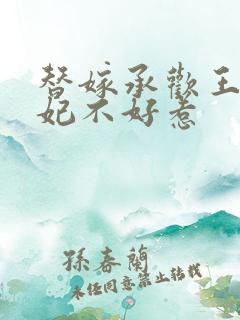 替嫁承歡王
妃不好惹
孫春蘭
未经同意禁止转载